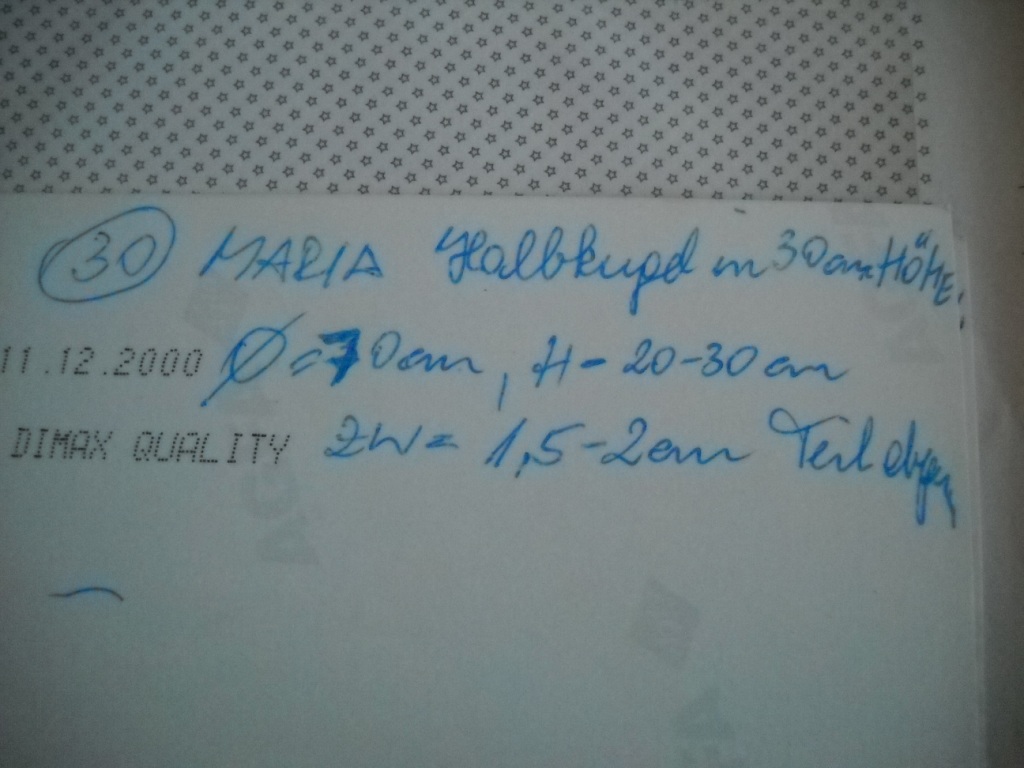 30 MARIA Halbkugel in 30cm HÖHE,
11.12.2000 Ø = 70cm, H - 20-30cm
DIMAX QUALITY ZW = 1,5-2cm Teil
AGFA